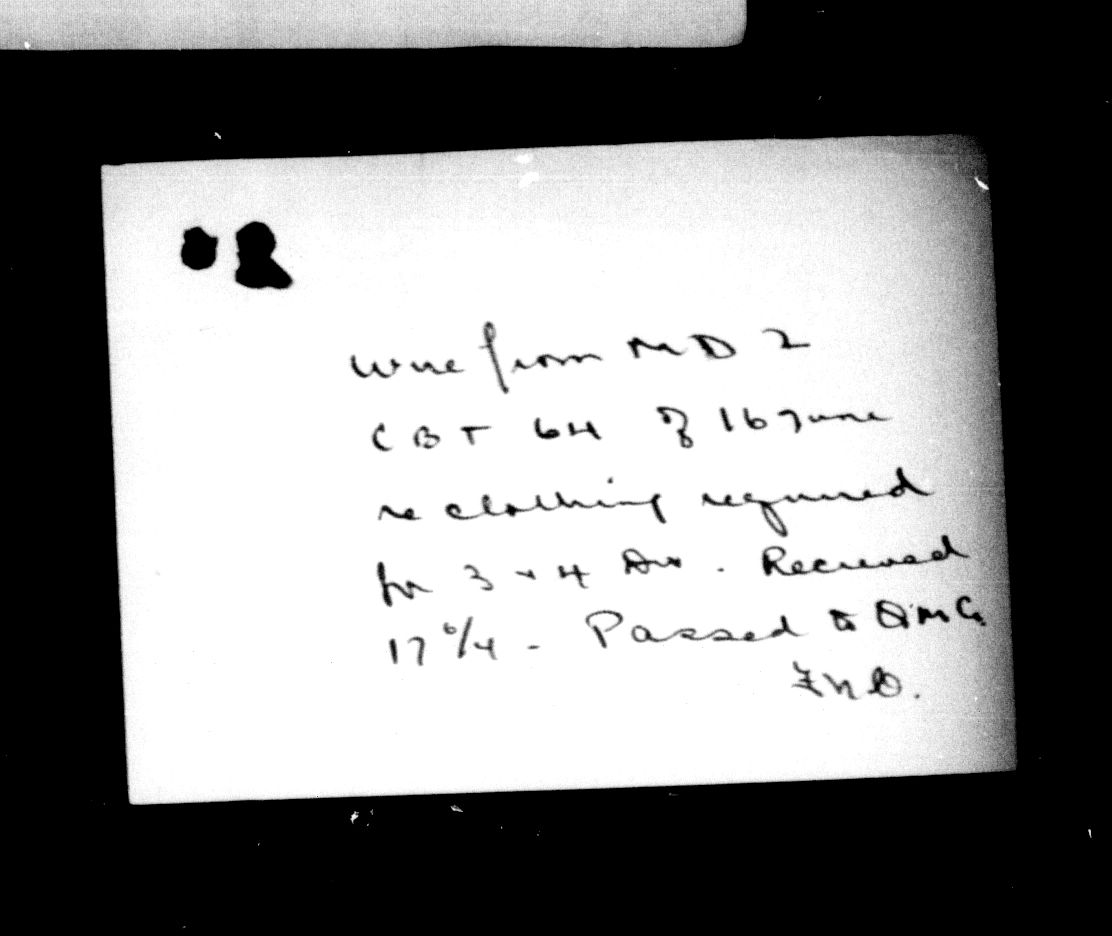 Wire from MD 2
CBT 64 of 16 June
re clothing required
for 3 + 4 Div. Received
17 6/4 - Passed to QMG